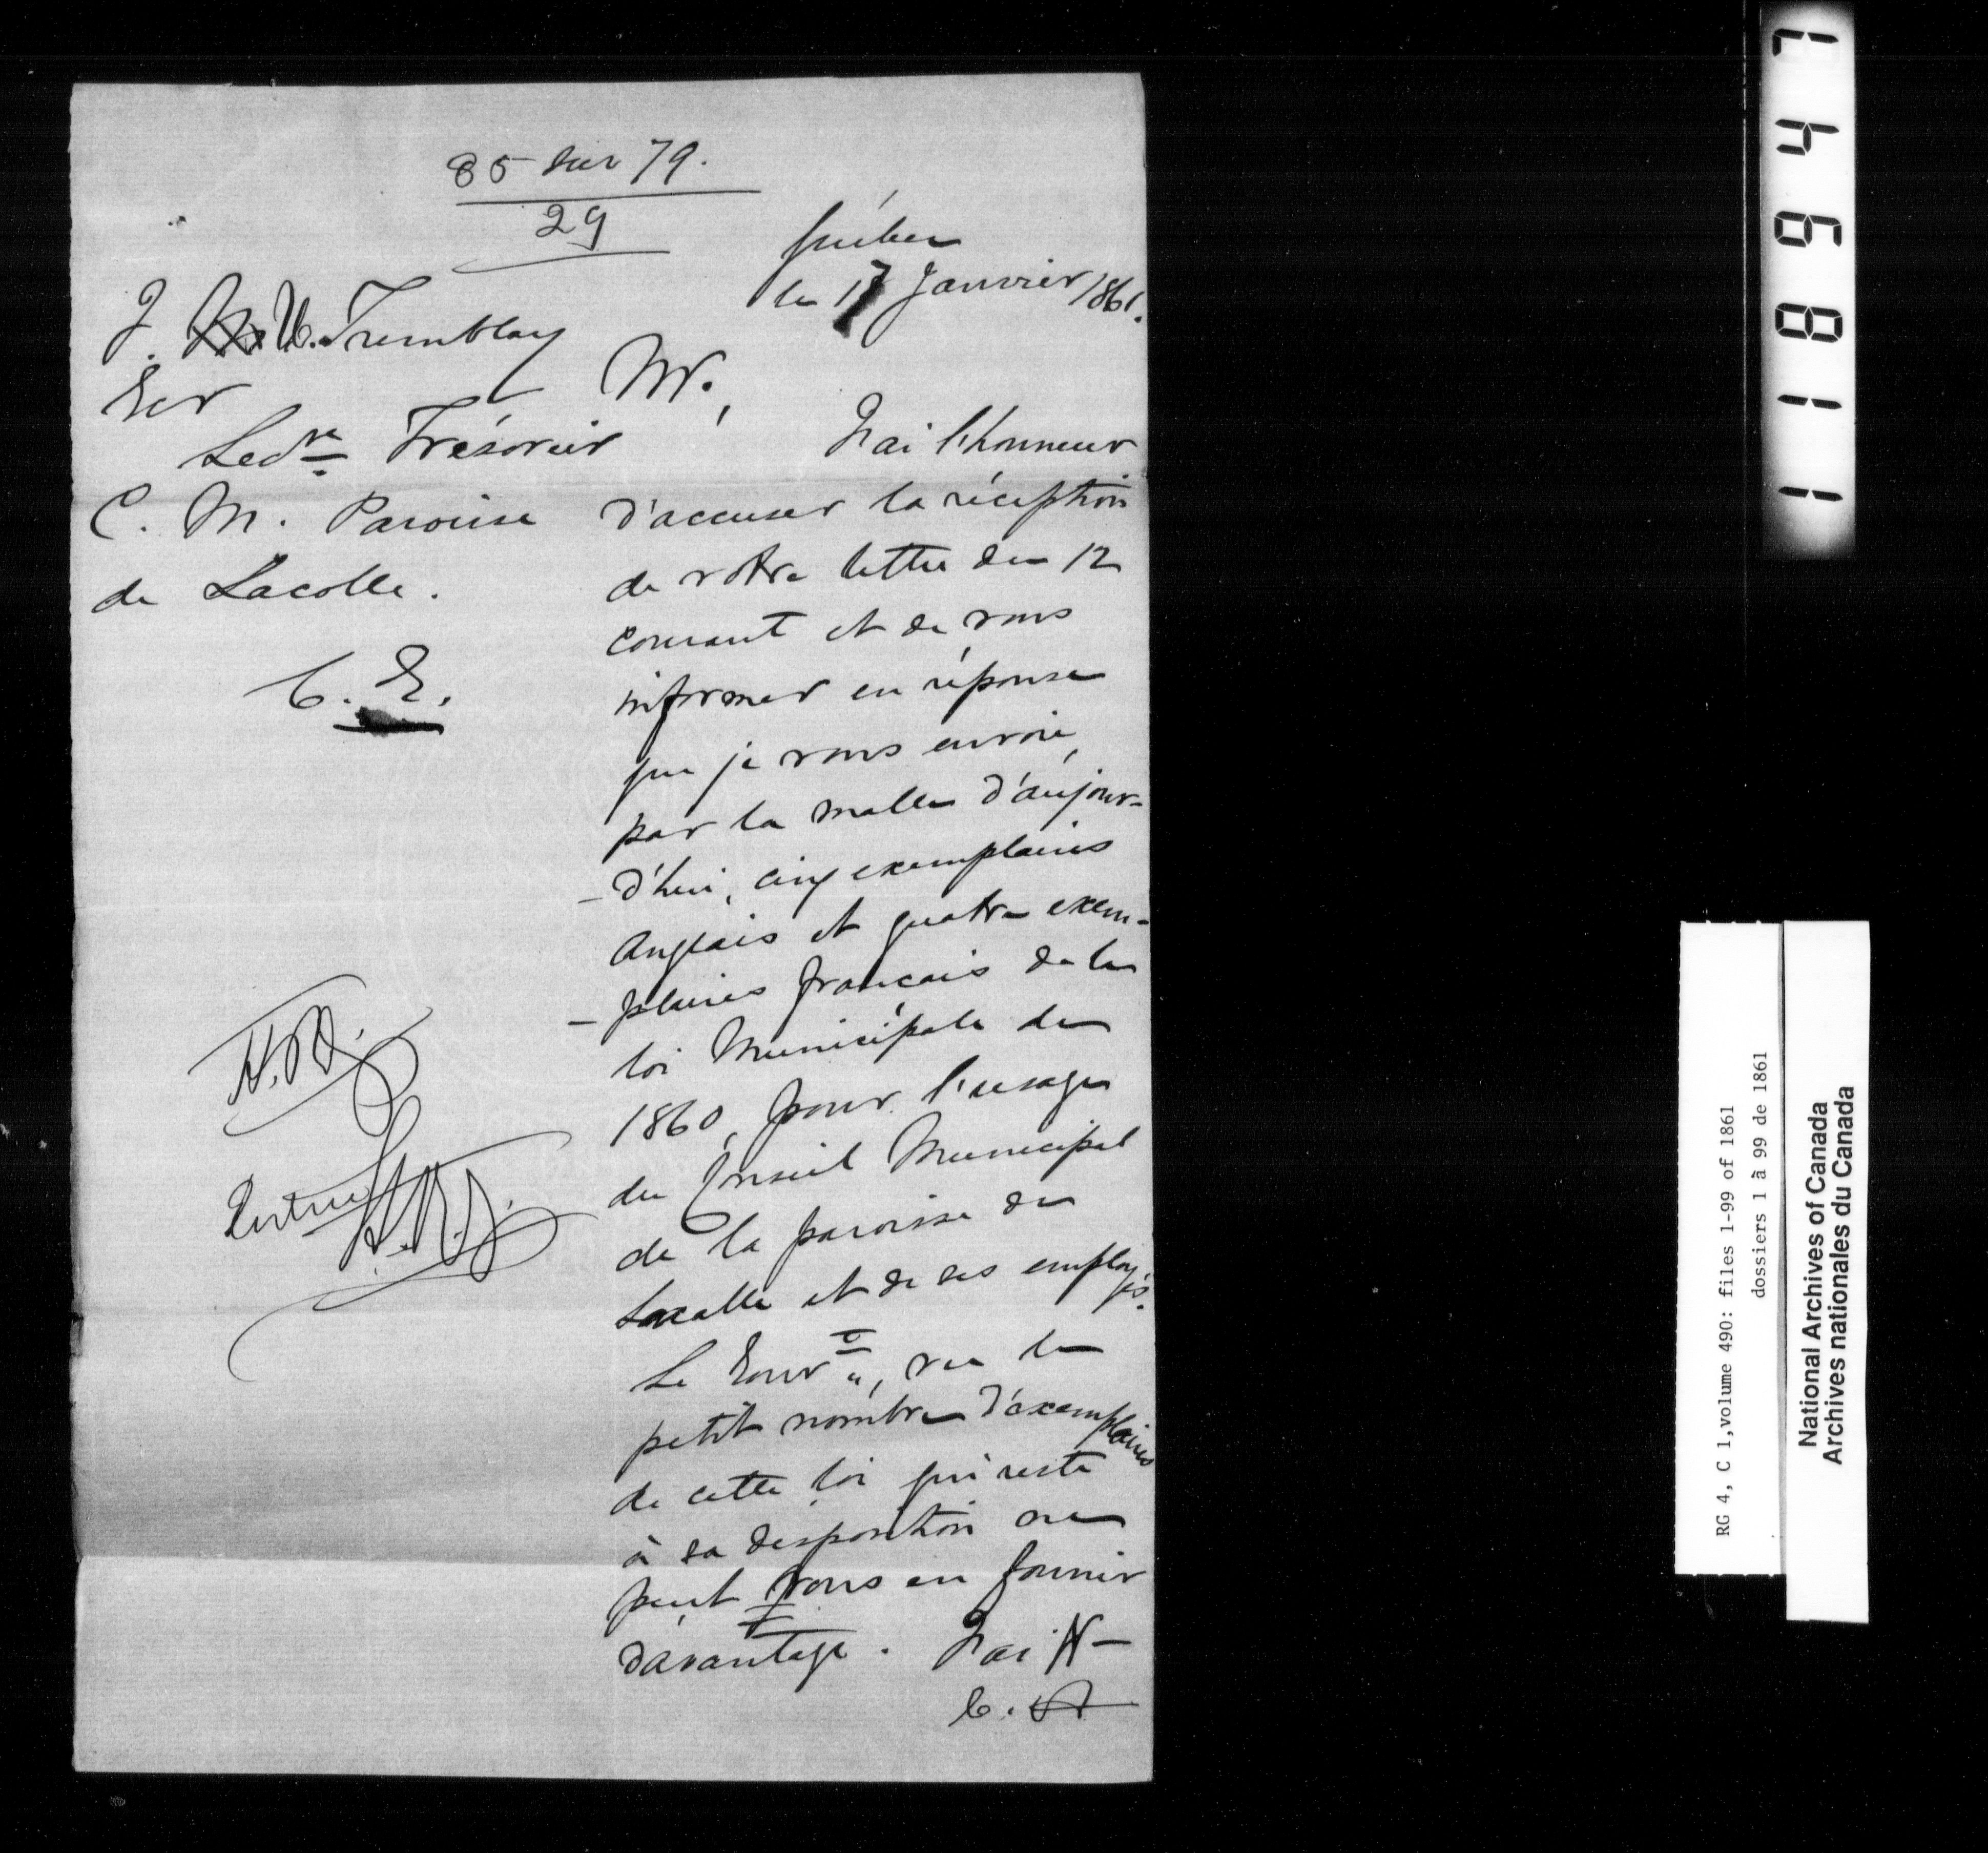 85 sur 79.
29
Québec
le 17 Janvier 1861.
J. U. Tremblay
Ecr
Secre Trésorier
C. M. Paroisse
de Lacolle.
C. E.
Mr,
J'ai l'honneur
d'accuser la réception
de votre lettre du 12
courant et de vous
informer en réponse
que je vous envoie,
par la malle d'aujour-
-d'hui, cinq exemplaires
Anglais et quatre exem-
-plaires français de la
loi Municipale de
1860, pour l'usage
du Conseil Municipal
de la paroisse de
Lacolle et de ses employés.
Le Gouvt, vu le
petit nombre d'exemplaires
de cette loi qui reste
à sa disposition ne
peut vous en fournir
davantage. J'ai H—
C. A
H.B.
Entrée
H.B.
1 1 8 9 4 7
RG 4, C 1,volume 490: files 1-99 of 1861
dossiers 1 à 99 de 1861
National Archives of Canada
Archives nationales du Canada